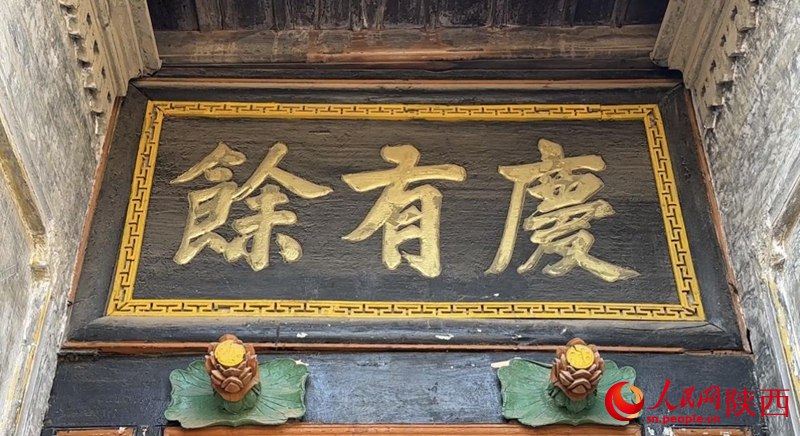 慶有餘
人民网 陕西
sn.people.cn